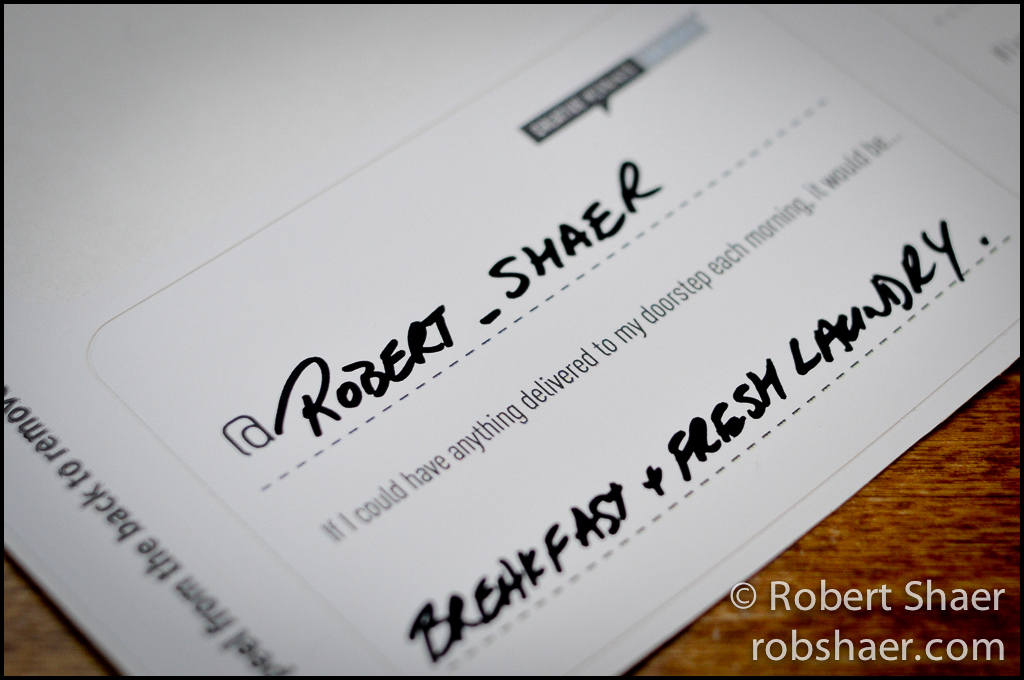 CREATIVE MORNINGS
@ROBERT_SHAER
If I could have anything delivered to my doorstep each morning, it would be...
BREAKFAST + FRESH LAUNDRY.
peel from the back to remov
© Robert Shaer
robshaer.com